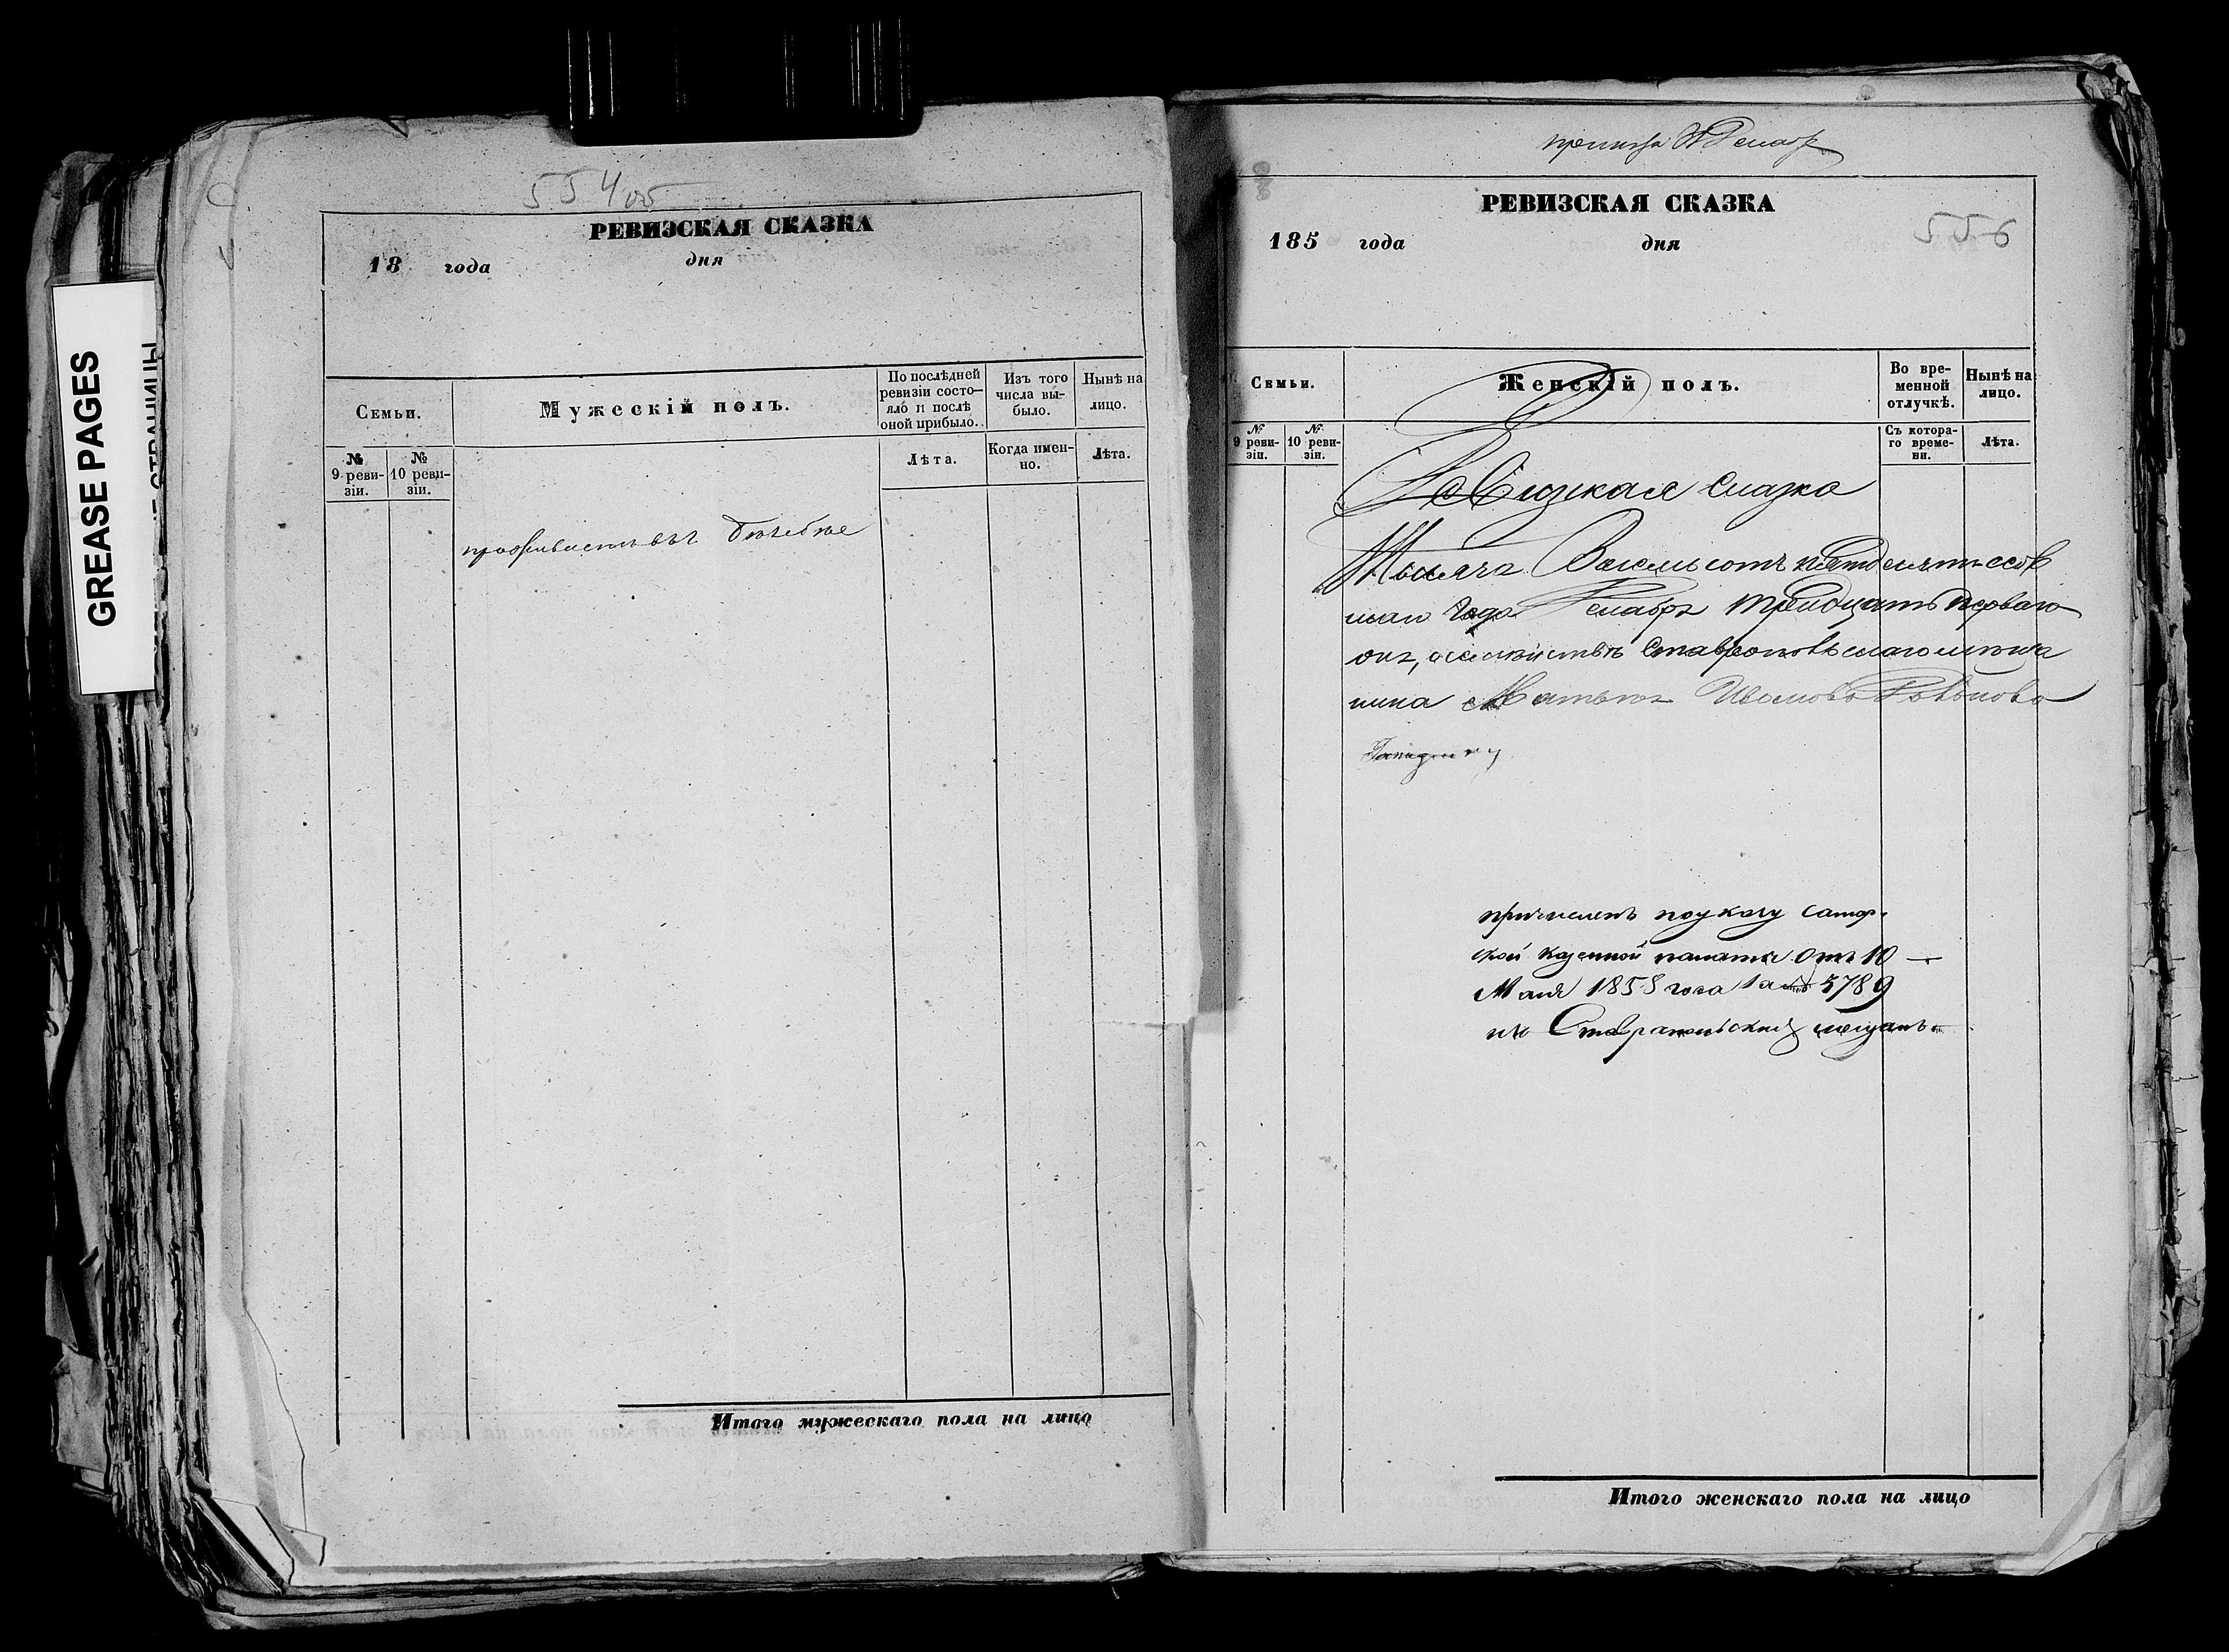 GREASE PAGES
554 об
РЕВИЗСКАЯ СКАЗКА
18 года дня
Семьи.
Мужескій полъ.
По послѣдней ревизіи состо-
яло и послѣ оной прибыло.
Изъ того числа вы-
было.
Нынѣ на лицо.
№ 9 реви-
зіи.
№ 10 реви-
зіи.
Лѣта.
Когда имен-
но.
Лѣта.
проживаетъ въ
Итого мужескаго пола на лицо
556
РЕВИЗСКАЯ СКАЗКА
185 года дня
Семьи.
Женскій полъ.
Во вре-
менной
отлучкѣ.
Нынѣ на
лицо.
№ 9 реви-
зіи.
№ 10 реви-
зіи.
Съ котора-
го време-
ни.
Лѣта.
Ревизкая Сказка
Тысяча Восемьсотъ пятдесятъ
года Декабря тридцать перваго
дня, о семействѣ Ставропольскаго мѣща
нина Иванова
причисленъ по указу Самар-
ской казенной палаты отъ 10
Мая 1858 года за № 3789
въ Ставропольскіе мещане
Итого женскаго пола на лицо